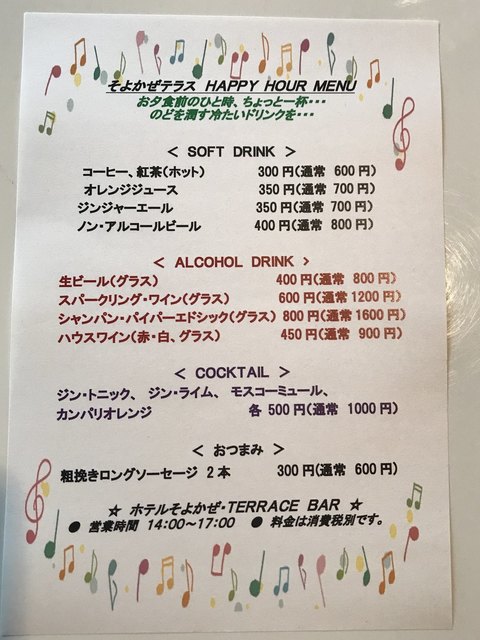 そよかぜテラス HAPPY HOUR MENU
お夕食前のひと時、ちょっと一杯・・・
のどを潤す冷たいドリンクを・・・
＜ SOFT DRINK ＞
コーヒー、紅茶(ホット) 300円(通常 600円)
オレンジジュース 350円(通常 700円)
ジンジャーエール 350円(通常 700円)
ノン・アルコールビール 400円(通常 800円)
＜ ALCOHOL DRINK ＞
生ビール(グラス) 400円(通常 800円)
スパークリング・ワイン(グラス) 600円(通常1200円)
シャンパン・パイパーエドシック(グラス) 800円(通常1600円)
ハウスワイン(赤・白、グラス) 450円(通常 900円)
＜ COCKTAIL ＞
ジン・トニック、 ジン・ライム、 モスコーミュール、
カンパリオレンジ 各 500円(通常 1000円)
＜ おつまみ ＞
粗挽きロングソーセージ 2本 300円(通常 600円)
☆ ホテルそよかぜ・TERRACE BAR ☆
● 営業時間 14:00～17:00 ● 料金は消費税別です。